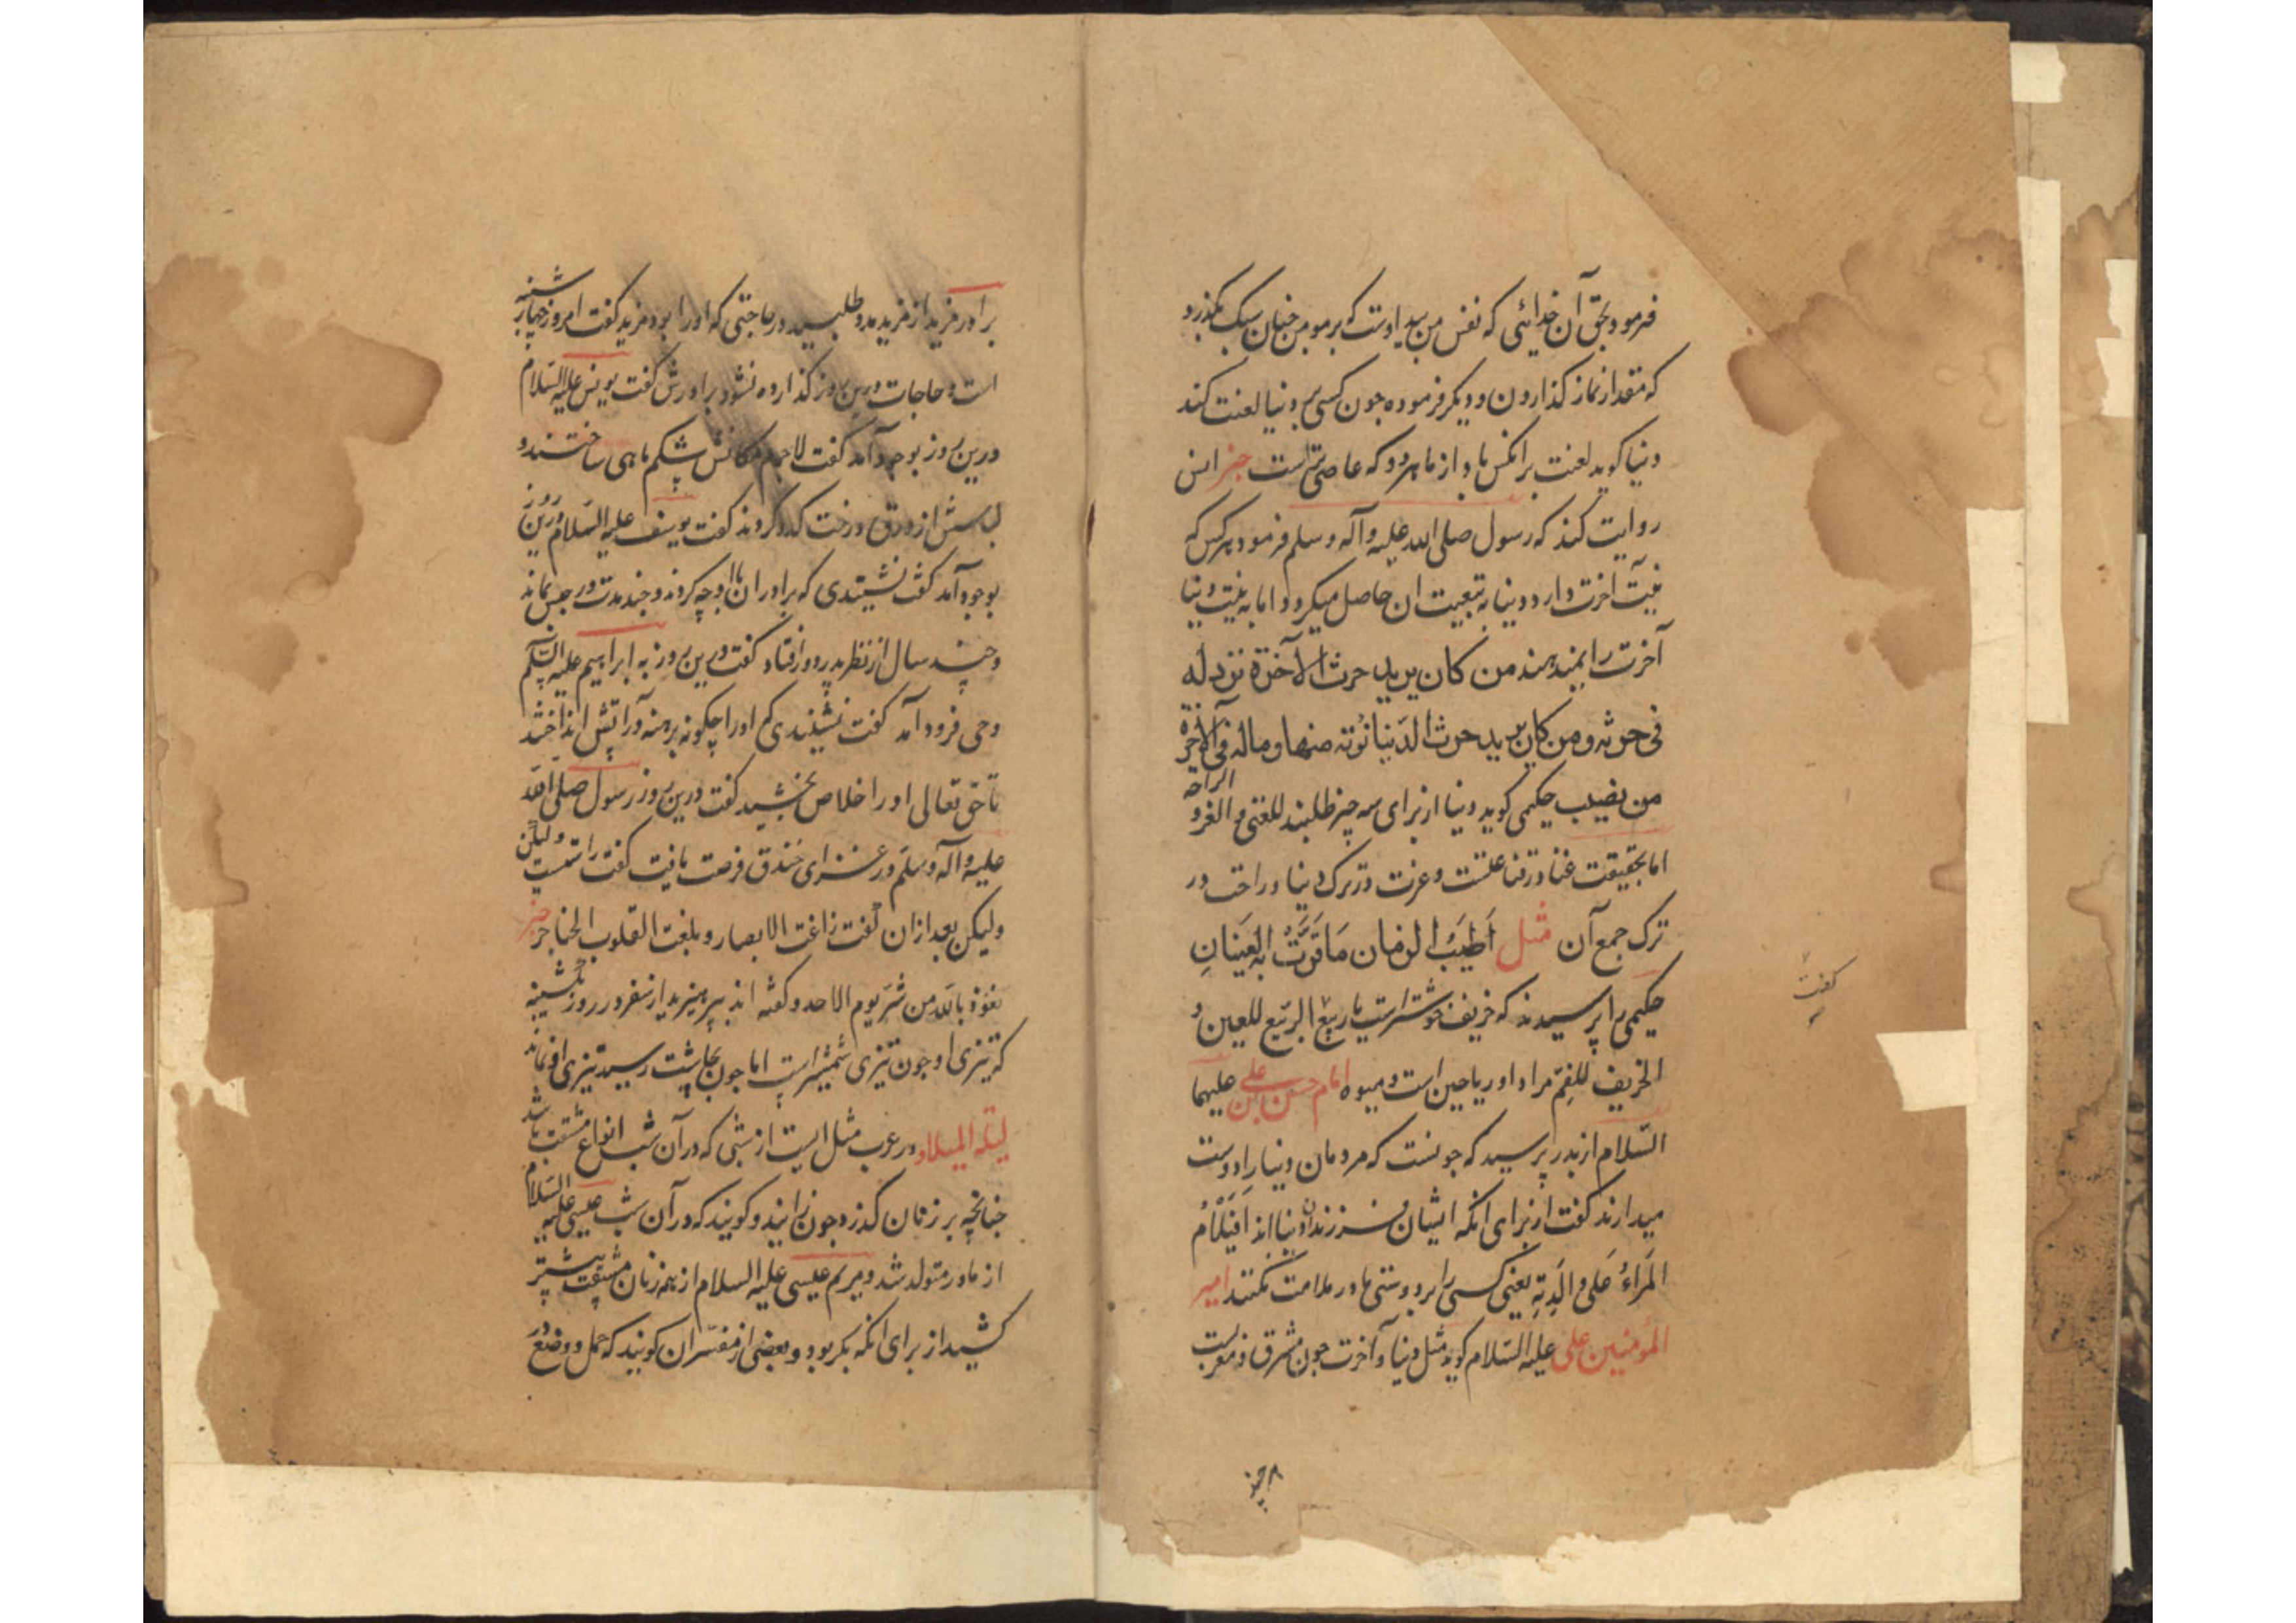 فرمود بحق آن خدائی که نفس من بید اوست که بر مومن چنان سبک بگذرد
که مقدار نماز گذاردن و دیگر فرموده چون کسی بر دنیا لعنت کند
دنیا گوید لعنت بر انکس باد از ما هر دو که عاصی تر است خبر انس
روایت کند که رسول صلی الله علیه و آله وسلم فرمود هر کس که
نیت آخرت دارد دنیا به تبعیت ان حاصل میکردد اما به نیت دنیا
آخرت را بندهند من کان یرید حرث الآخرة نزد له
فی حرثه و من کان یرید حرث الدنیا نؤته منها و ماله فی الآخرة
من نصیب حکیمی کوید دنیا از برای سه چیز طلبند للغنی و العز و الراحه
اما بحقیقت غنا در قناعتست و عزت در ترک دنیا و راحت در
ترک جمع آن مثل أطیب الزمان ما قرّت به العینان
حکیمی را پرسیدند که خریف خوشتر است یا ربیع الربیع للعین و
الخریف للفم مراد او ریاحین است و میوه امام حسن ابن علی علیهما
السلام از پدر پرسید که چونست که مردمان دنیا را دوست
میدارند کفت از برای انکه ایشان فرزندان دنیا اند افیلام
المرء علی والدته یعنی کسی را بر دوستی مادر ملامت نکنند امیر
المؤمنین علی علیه السلام کوید مثل دنیا و آخرت چون مشرق و مغربست
کفت
برادر مزید از مزید مدد طلبید در حاجتی که او را بود مزید کفت امروز چهارشنبه
است و حاجات درین روز کذارده نشود برادرش کفت یونس علیه السلام
درین روز بوجود آمد کفت لاجرم مکانش شکم ماهی ساختند و
لباسش از ورق درخت کدو کردند کفت یوسف علیه السلام درین روز
بوجود آمد کفت نشنیدی که برادران با او چه کردند و چند مدت در حبس بماند
و چند سال از نظر پدر دور افتاد کفت درین روز به ابراهیم علیه السلام
وحی فرود آمد کفت نشنیدی که او را چکونه برهنه در آتش انداختند
تا حق تعالی او را خلاص بخشید کفت درین روز رسول صلی الله
علیه و آله وسلم در غزای خندق فرصت یافت کفت راستست ولیکن
ولیکن بعد از ان کفت زاغت الابصار و بلغت القلوب الحناجر خبر
نعوذ بالله من شر یوم الاحد و کفته اند بپرهیزید از سفر در روز یکشنبه
که تیزی او چون تیزی شمشیر است اما چون بچاشت رسید تیزی او نماند
لیلة المیلاد در عرب مثل ایست از شبی که در آن شب انواع مشقت باشد
چنانچه بر زنان کذرد چون زایند و کویند که در آن شب عیسی علیه السلام
از مادر متولد شد و مریم عیسی علیه السلام از همه زنان مشقت بیشتر
کشید از برای انکه بکر بود و بعضی از مفسران کویند که حمل و وضع در